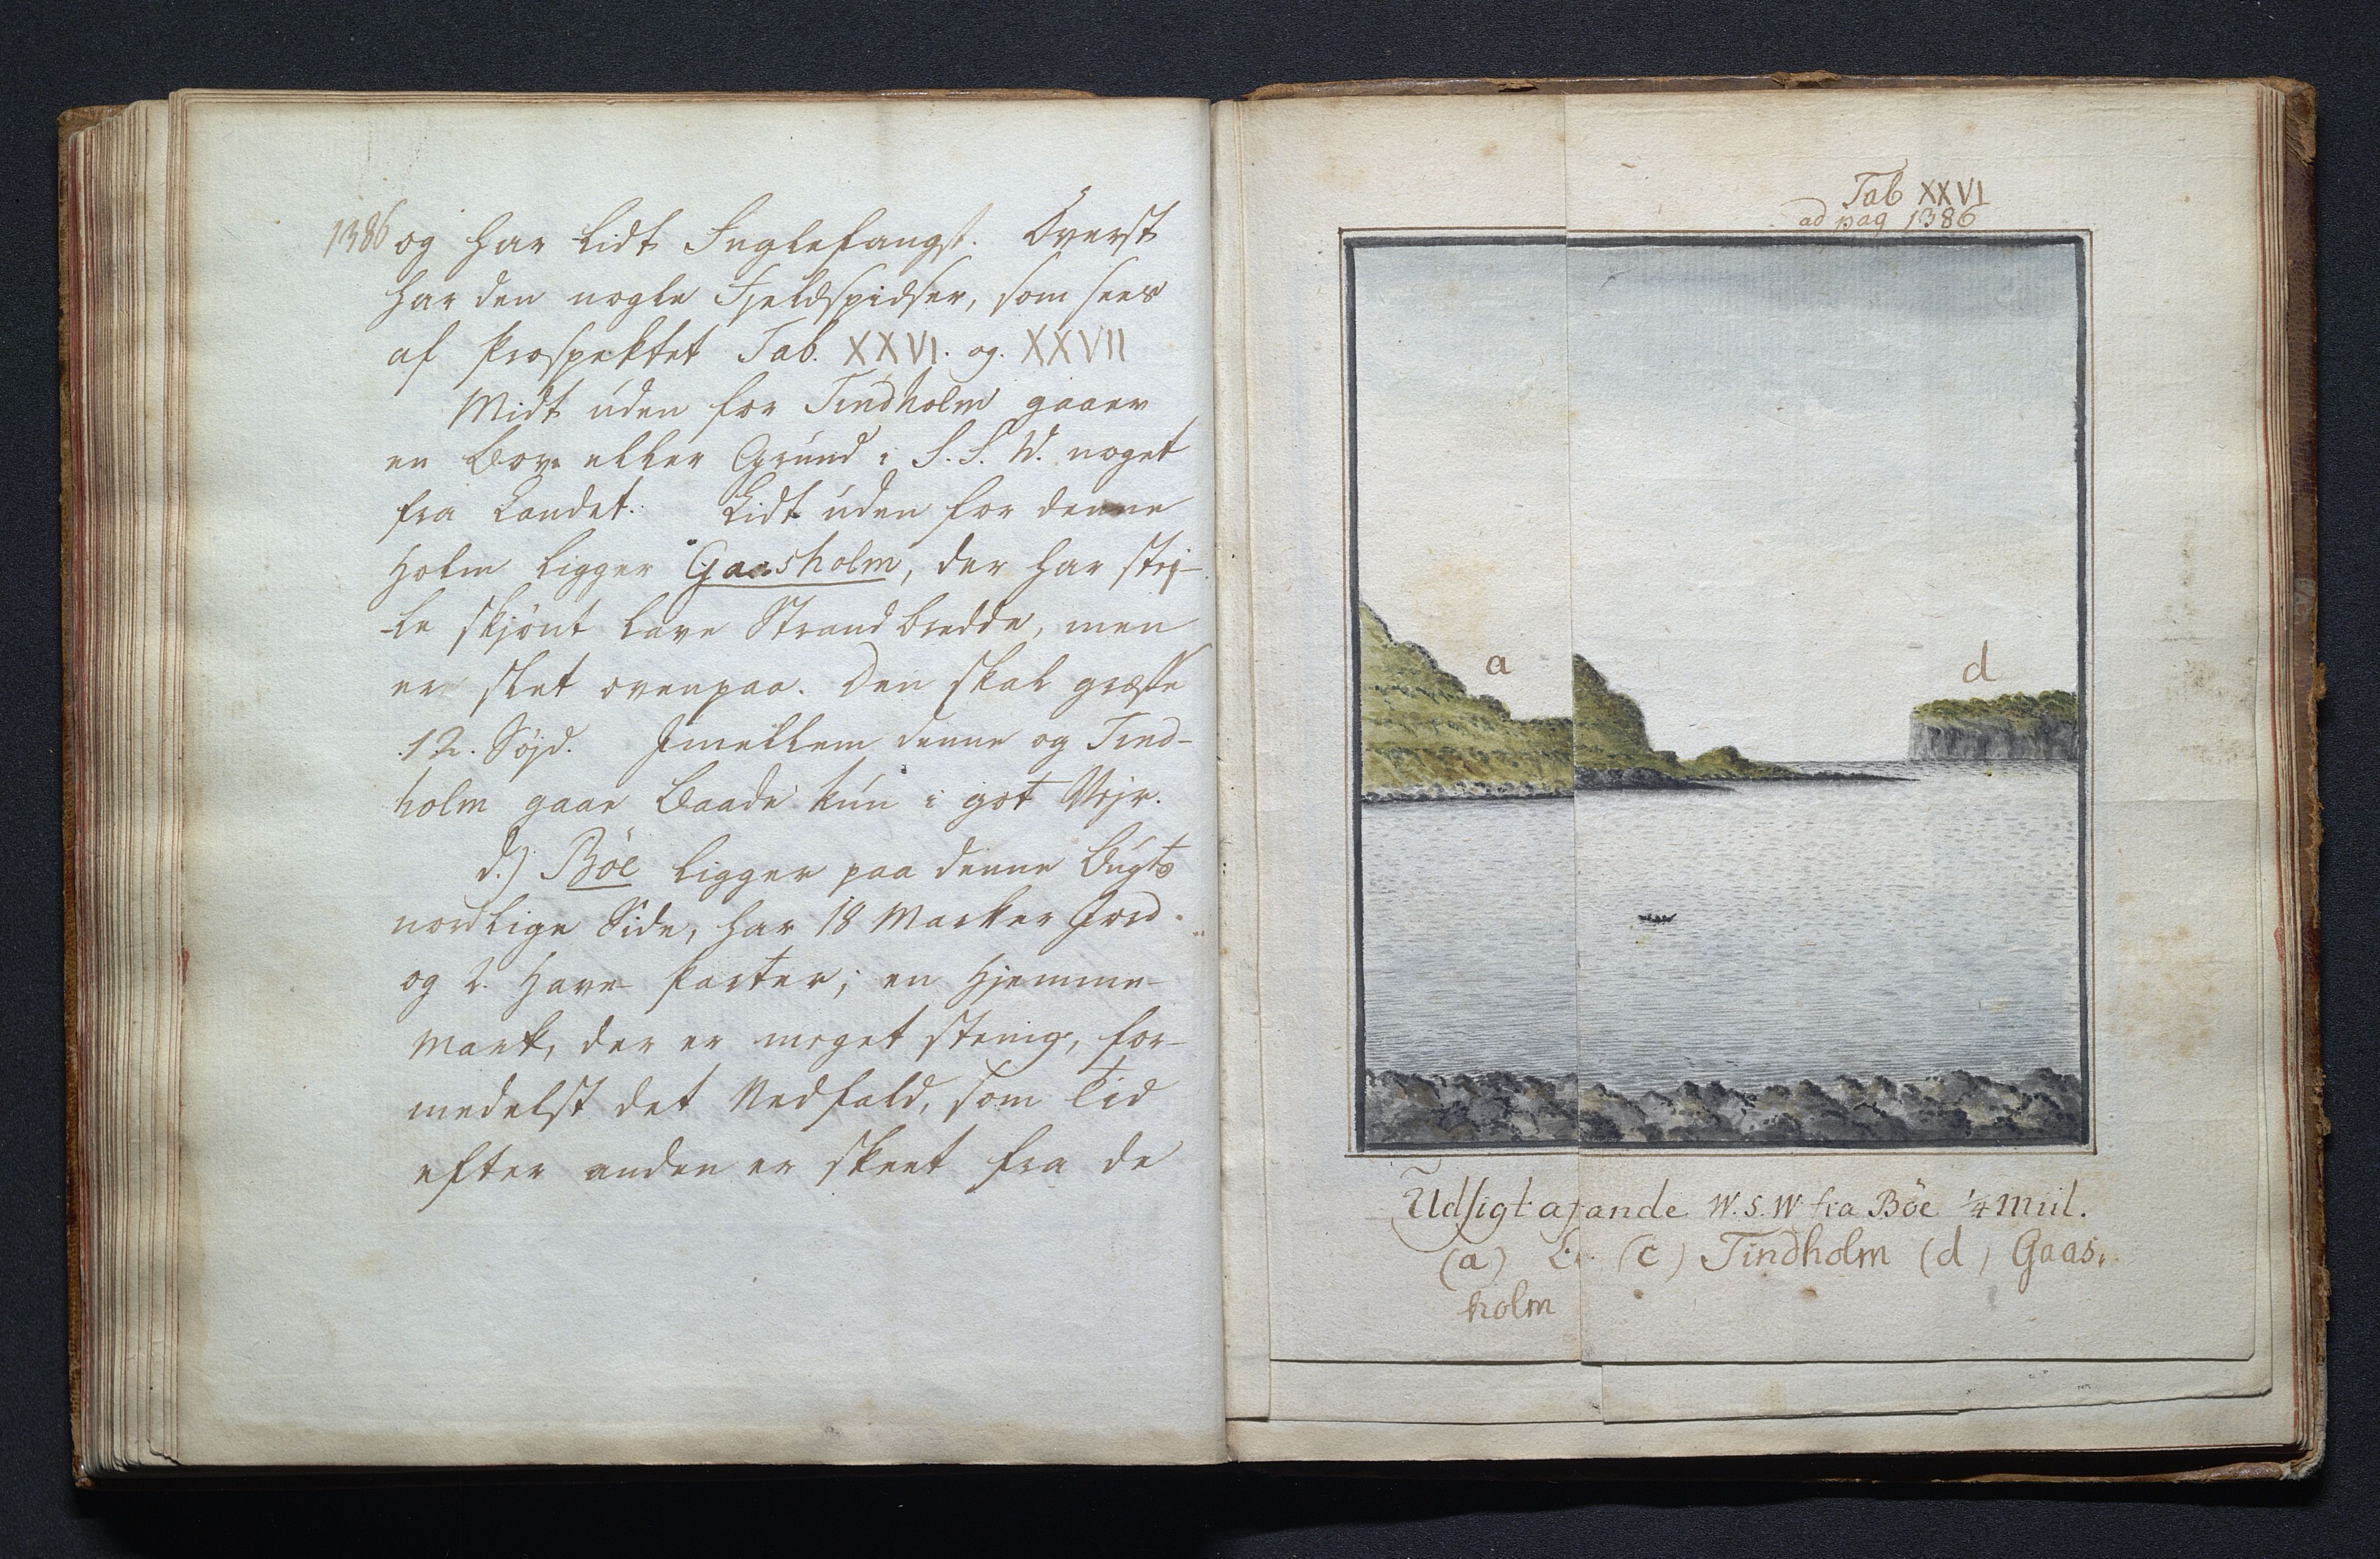 1386 og har lidt Fuglefangst. Överst
har den nogle Fjeldspidser, som sees
af Prospektet Tab. XXVI. og. XXVII
Midt uden for Tindholm gaaer
en Boe eller Grund i S. S. W. noget
fra Landet. Lidt uden for denne
Holm ligger Gaasholm, der har stej-
-le skjönt lave Strandbredde, men
er slet ovenpaa. Den skal græsse
12. Söjd. Jmellem denne og Tind-
holm gaae Baade kun i got Vejr.
d.) Böe ligger paa denne Bugts
nordlige Side, har 18 Marker Jord
og 2. Have Parter; en Hjemme-
Mark, der er meget stenig, for-
medelst det Nedfald, som Tid
efter anden er skeet fra de
Tab XXVI
ad pag 1386
a
d
Udsigt a ande W. S. W fra Böe 1/4 Miil.
(a) (c) Tindholm (d) Gaas.
holm